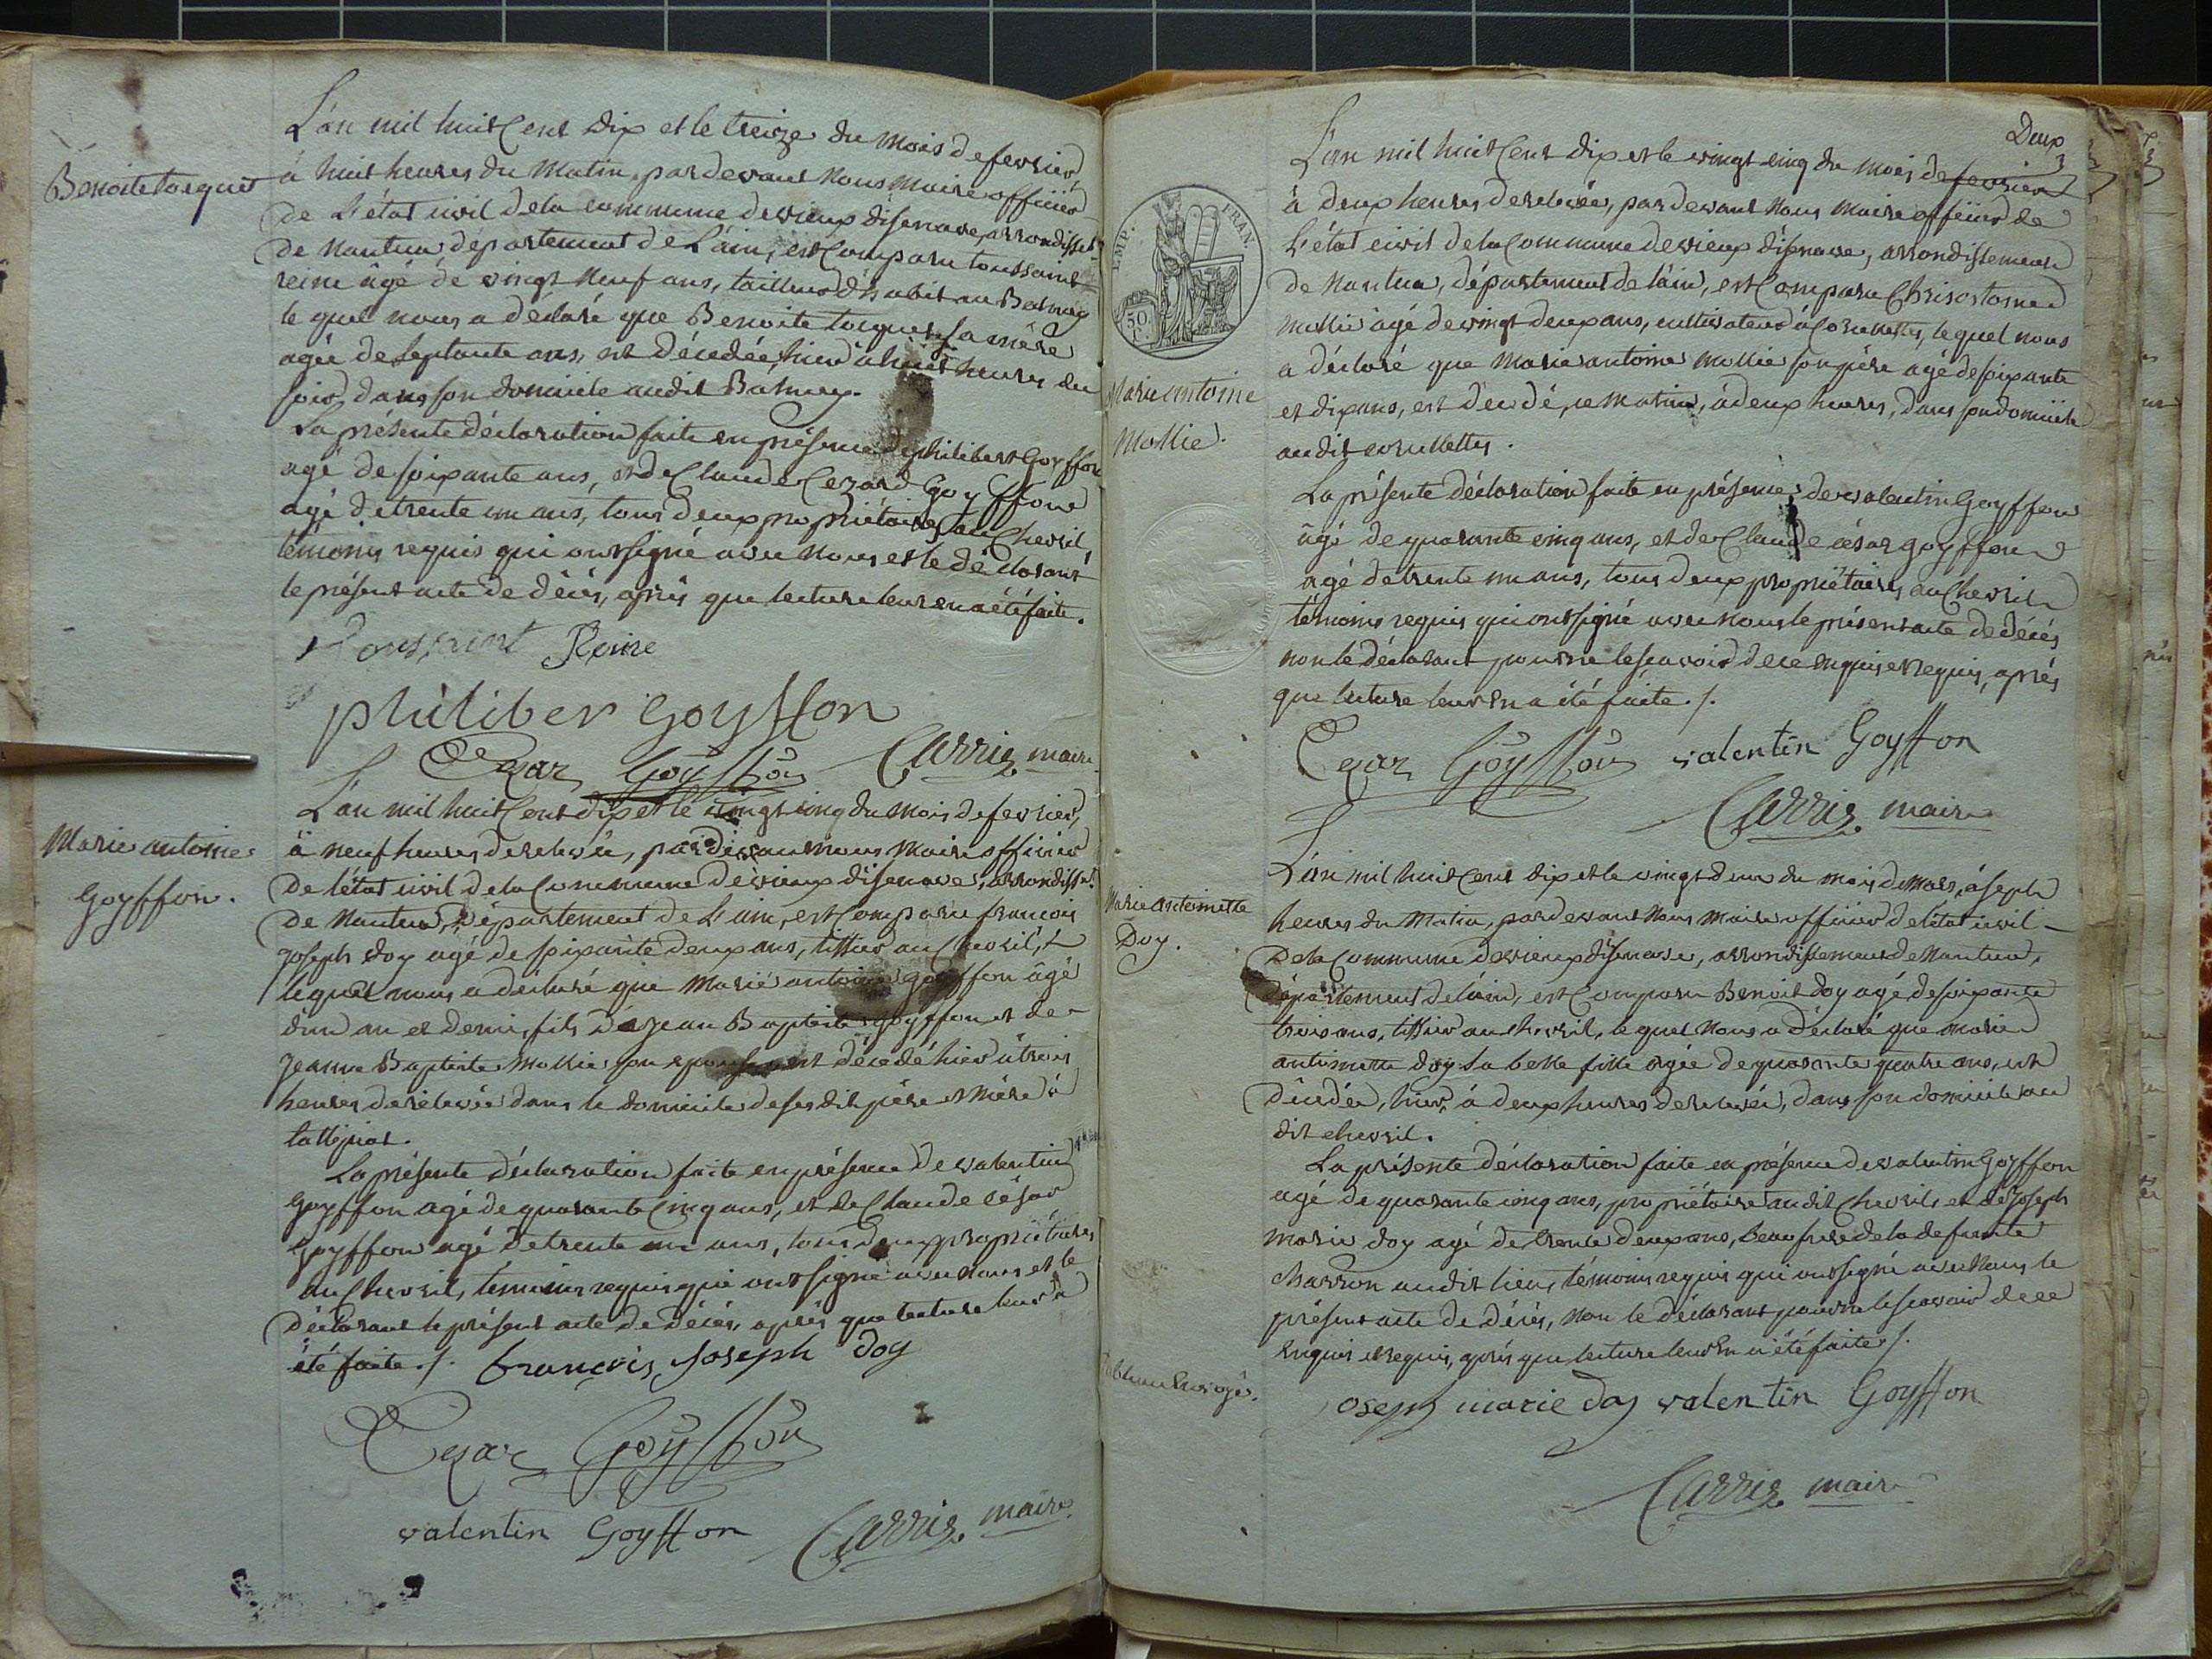 Benoite tosquet
L'an mil huit Cent dix et le treize du mois de fevrier
à huit heures du Matin, pardevant Nous maire officier
de L'état civil dela commune devieux disenave, arrondisset
de nantua, département de L'ain, est Comparu toussaint
reine âgé de vingt neuf ans, tailleur d'habit au Balmay
le quel nous a déclaré que Benoite tosquet sa mère
agée de septante ans, est décédée, hier à huit heures du
soir, dans son domicile audit Balmay.
La présente déclaration faite en présence de philibert Goyffon
agé de soixante ans, et de Claude Cezard Goyffon
agé de trente un ans, tous deux propriétaires au Chevril,
témoins requis qui ont signé avec nous et le déclarant
le présent acte de décès, après que lecture leur en a été faite.
Toussaint Reine
philiber Goyffon
Cezar Goyffon Carrier maire
Marie antoine
Goyffon.
L'an mil huit Cent dix et le vingt cinq du mois de fevrier,
à neuf heures de relevée, pardevant nous Maire officier
de l'état civil dela Commune devieux disenave, arrondisst.
de Nantua, département de L'ain, est Comparu françois
joseph doy agé de soixante deux ans, tissier au Chevril,
lequel nous a déclaré que Marie antoine goyffon âgé
d'un an et demi, fils de jean Baptiste goyffon et de
jeanne Baptiste Mollie son epouse, est décédé hier à trois
heures de relevée dans le domicile de ses dits père et mère à
La présente déclaration faite en présence de valentin
goyffon agé de quarante Cinq ans, et de Claude César
Goyffon agé de trente un ans, tous deux propriétaires
au Chevril, témoins requis qui ont signé avec nous et le
déclarant le présent acte de décès, après que lecture leur a
été faite ./. francois Joseph doy
Cezar Goyffon
valentin Goyffon Carrier maire
Deux
3
EMP. FRAN.
50
Marie antoine
Mollie.
L'an mil huit Cent dix et le vingt cinq du mois de fevrier
à deux heures de relevée, pardevant Nous Maire officier de
L'état civil dela Commune devieux disenave, arrondissement
de Nantua, département de l'ain, est Comparu Chrisostome
Mollie âgé de vingt deux ans, cultivateur à Corcelettes, le quel nous
a déclaré que Marie antoine Mollie son père âgé de soixante
et dix ans, est décédé, ce matin, à deux heures, dans son domicile
audit corcelettes.
La présente déclaration faite en présence de valentin Goyffon
âgé de quarante cinq ans, et de Claude césar goyffon
agé de trente un ans, tous deux propriétaires au Chevril
témoins requis qui ont signé avec nous le présent acte de décès
non le déclarant pour ne le scavoir de ce enquis et requis, après
que lecture leur En a été faite ./.
Cezar Goyffon valentin Goyffon
Carrier maire
Marie antoinette
Doy.
L'an mil huit Cent dix et le vingt deux du mois de Mars, à sept
heures du Matin, pardevant Nous Maire officier de l'état civil
De la Commune devieux disenave, arrondissement de Nantua,
département de l'ain, est Comparu Benoit doy agé de soixante
trois ans, tissier au chevril, le quel Nous a déclaré que marie
antoinette doy sa belle fille agée de quarante quatre ans, est
décédée, hier, à deux heures de relevée, dans son domicile au
dit chevril.
La présente déclaration faite en présence de valentin Goyffon
agé de quarante cinq ans, propriétaire audit Chevril, et de joseph
marie doy agé de trente deux ans, beaufrere de la defunte
charron audit lieu, témoins requis qui ont signé avec Nous le
présent acte de décès, non le déclarant pour ne le scavoir de ce
enquis et requis, après que lecture leur En a été faite ./.
joseph marie doy valentin Goyffon
Carrier maire